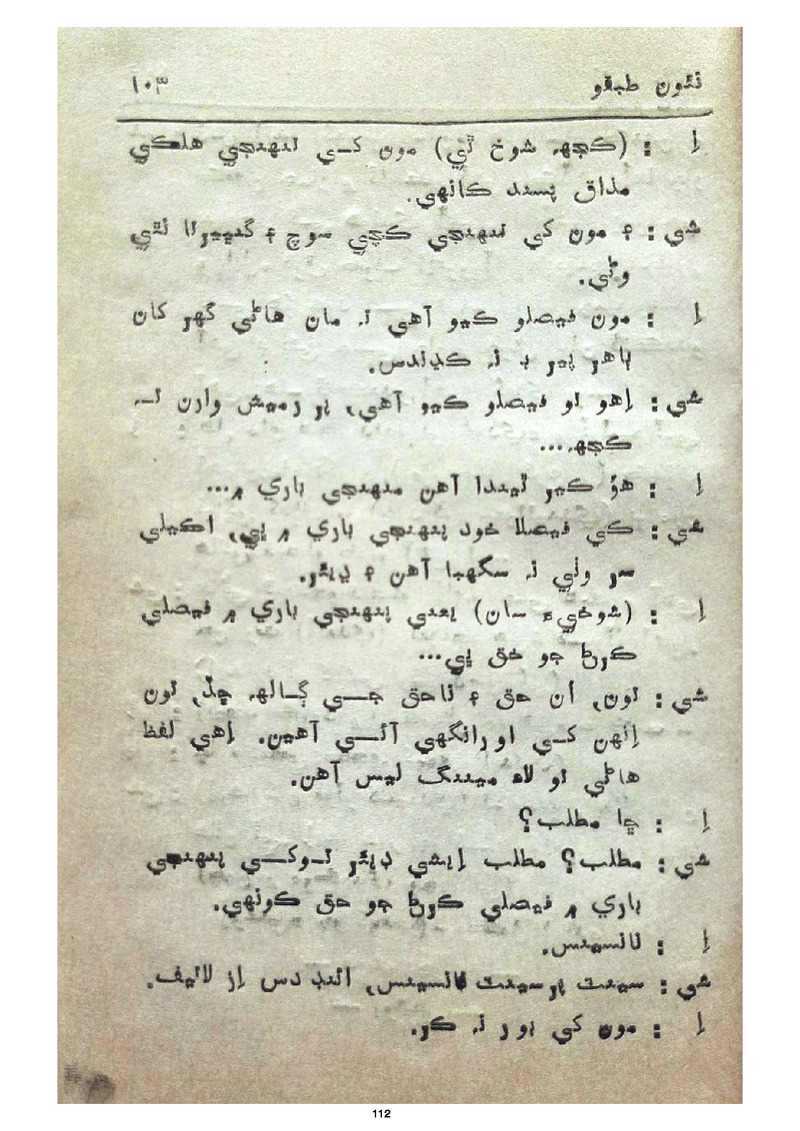 نئون طبقو ١٠٣
اِ : (ڪجهہ شوخ ٿي) مون کي تنهنجي هلڪي
مذاق پسند ڪانهي.
شي : ۽ مون کي تنهنجي ڪچي سوچ ۽ گنڀيرتا نٿي
وڻي.
اِ : مون فيصلو ڪيو آهي تہ مان هاڻي گهر کان
ٻاهر پير ب نہ ڪڍندس.
شي : اِهو تو فيصلو ڪيو آهي، پر رميش وارن تہ
ڪجهہ...
اِ : هوُ ڪير ٿيندا آهن منهنجي باري ۾...
شي : ڪي فيصلا خود پنهنجي باري ۾ بي، اڪيلي
سر وٺي نہ سگهبا آهن ۽ ڊيئر.
اِ : (شوخيءَ سان) يعني پنهنجي باري ۾ فيصلي
ڪرڻ جو حق بي...
شي : تون، اُن حق ۽ ناحق جي ڳالهہ ڇڏ، تون
اِنهن کي اورانگهي آئي آهين. اِهي لفظ
هاڻي تو لاءِ ميننگ ليس آهن.
اِ : ڇا مطلب؟
شي : مطلب؟ مطلب اِيشي ڊيئر توکي پنهنجي
باري ۾ فيصلي ڪرڻ جو حق ڪونهي.
اِ : نانسينس.
شي : سينٽ پرسينٽ نانسينس، ائنڊ دس اِز لائيف.
اِ : مون کي بور نہ ڪر.
112